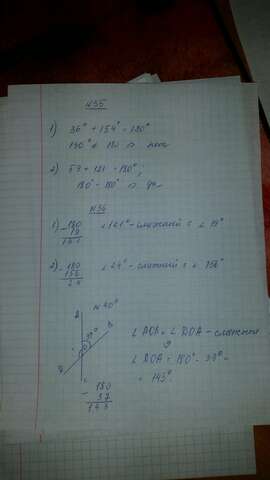 N35
1) 36° + 154° - 180°
190° ≠ 180 => нет
2) 59 + 121 - 180°;
180° - 180° => да
N36
1) - 180
19
161
∠ 161° - смежный с ∠ 19°
2) - 180
156
24
∠ 24° - смежный с ∠ 156°
N 40°
A
37°
B
O
C
∠ AOB и ∠ DOA - смежные
∠ DOA = 180° - 37° =
= 143°.
- 180
37
143